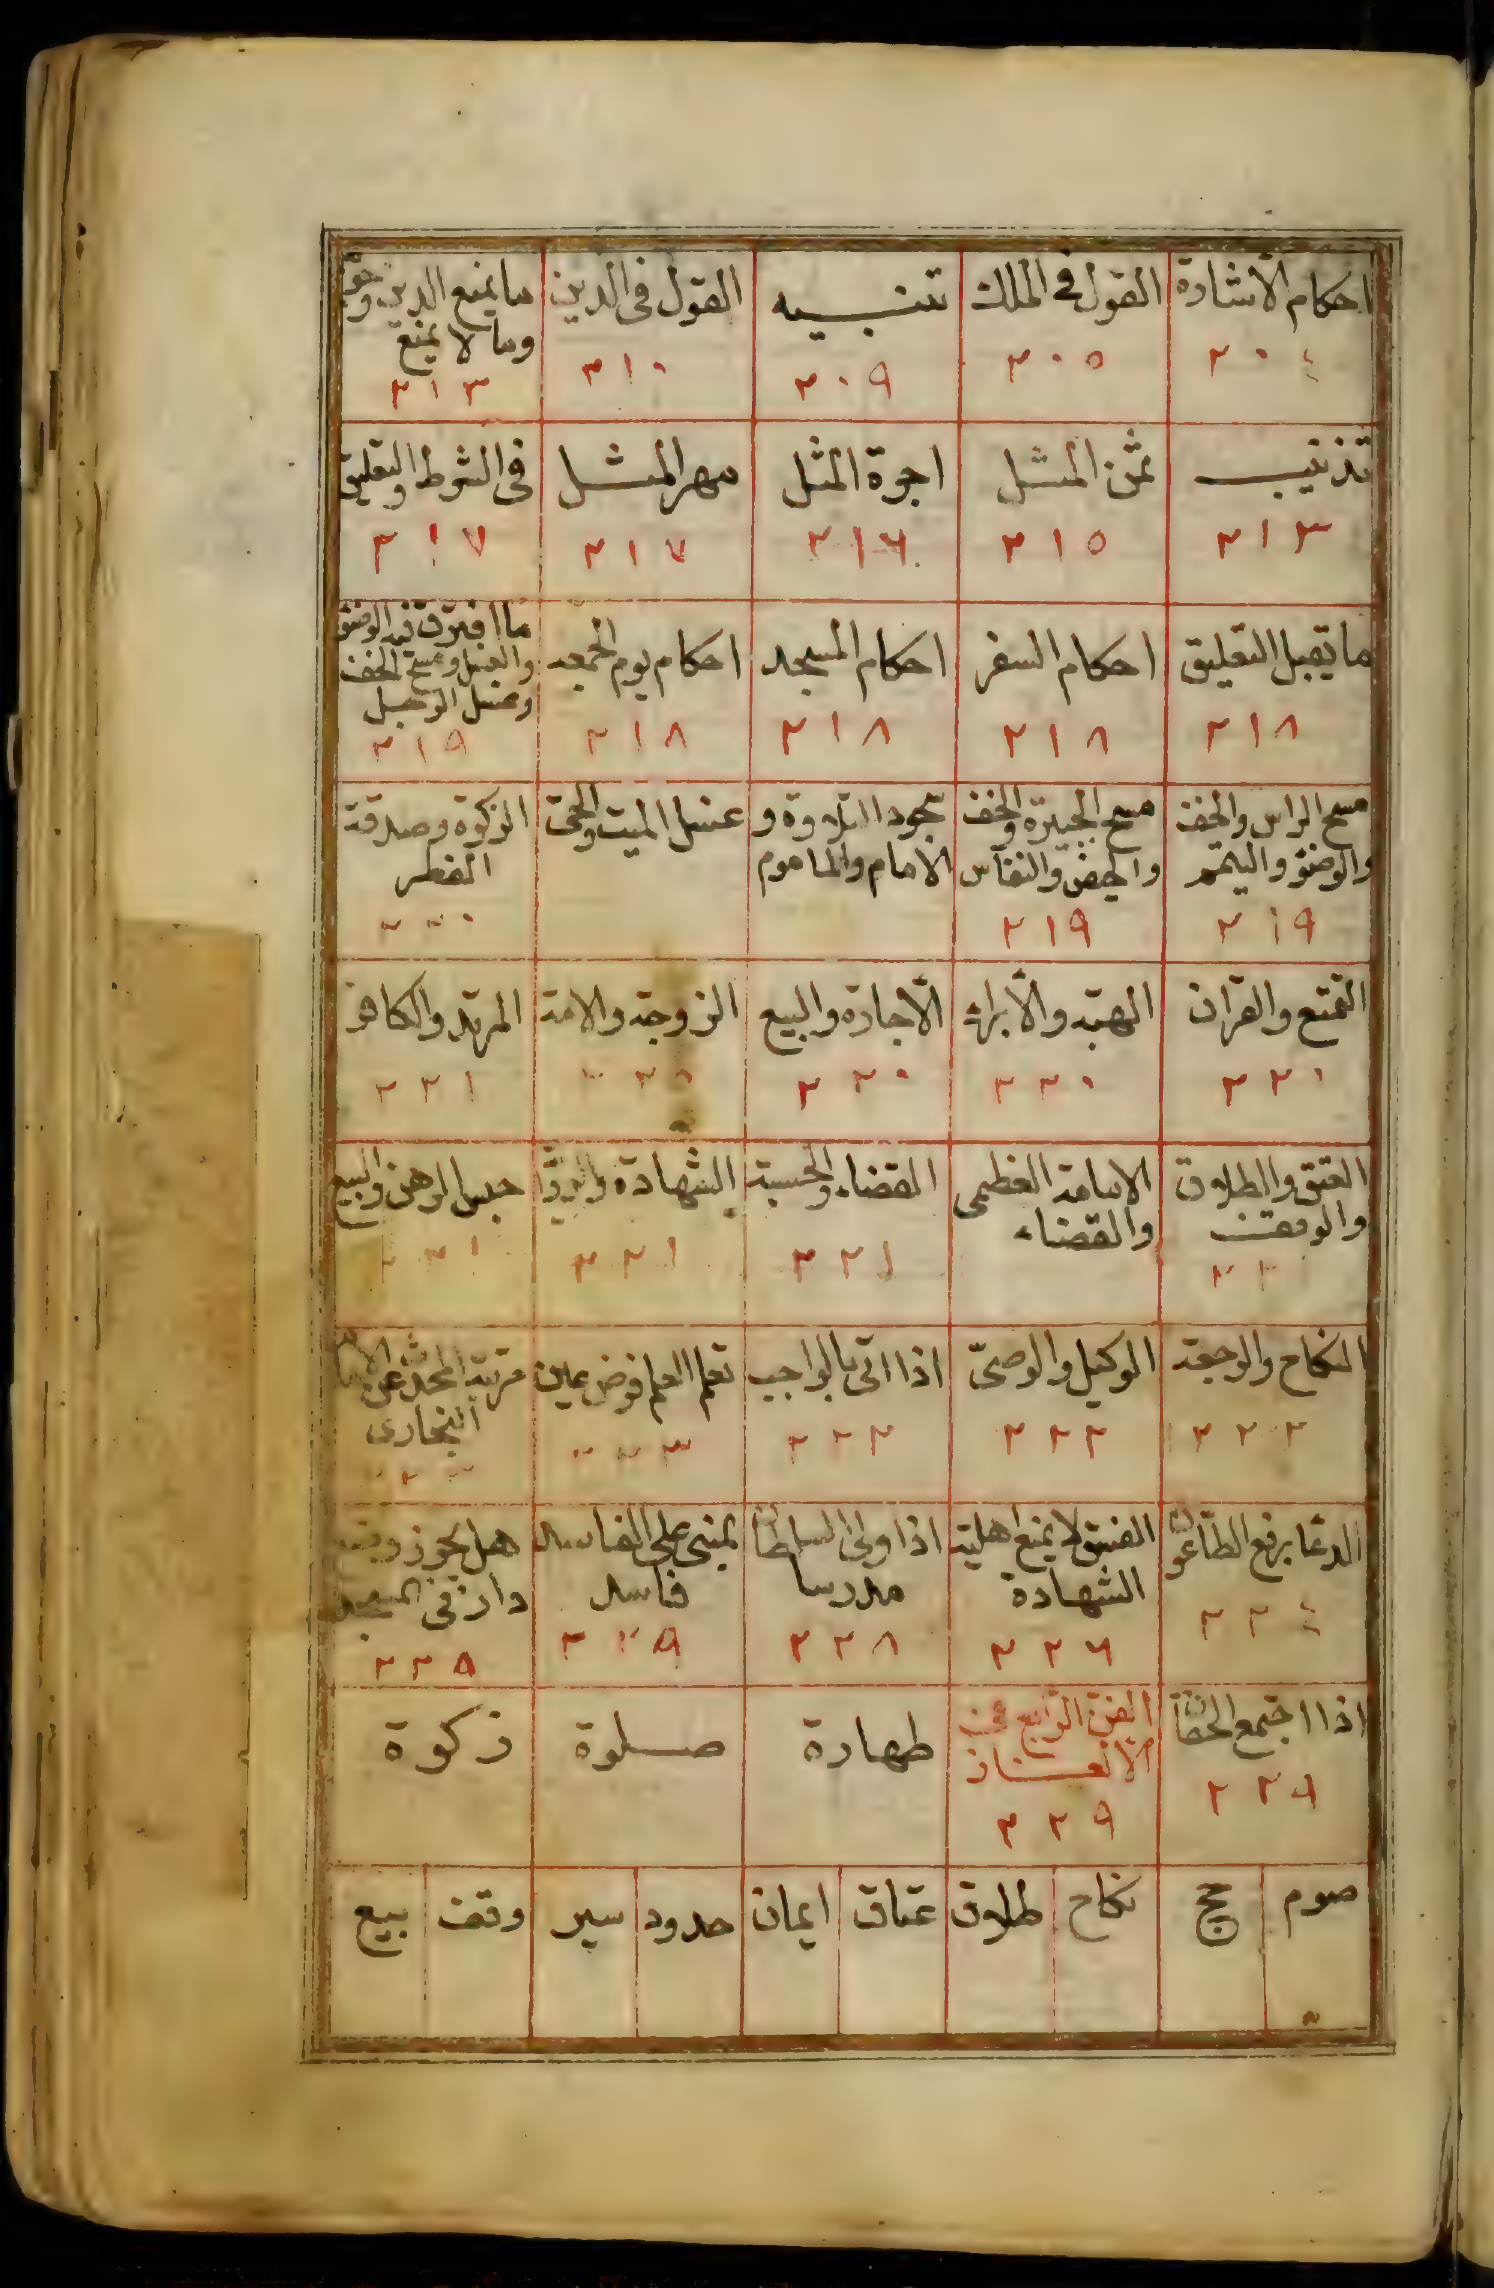 احكام الأشارة
٢٠٤
القول في الملك
٢٠٥
تنبيه
٢٠٩
القول في الدين
٢١٠
ما يمنع الدين وجوبه
وما لا يمنع
٢١٣
تذنيب
٢١٣
ثمن المثل
٢١٥
اجرة المثل
٢١٦
مهر المثل
٢١٧
في الشرط والتعليق
٢١٧
ما يقبل التعليق
٢١٨
احكام السفر
٢١٨
احكام المسجد
٢١٨
احكام يوم الجمعه
٢١٨
ما افترق فيه الوضؤ
والغسل ومسح الخف
وغسل الرجل
٢١٩
مسح الراس والخف
والوضؤ والتيمم
٢١٩
مسح الجبيره والخف
والحيض والنفاس
٢١٩
سجود التلاوة و
الامام والماموم
غسل الميت والحي
الزكوة وصدقة
الفطر
٢٢٠
التمتع والقران
٢٢٠
الهبة والأبراء
٢٢٠
الأجارة والبيع
٢٢٠
الزوجة والامة
٢٢٠
المرتد والكافر
٢٢١
العتق والطلاق
والوقف
الامامة العظمى
والقضاء
القضاء والحسبة
٢٢١
الشهادة والرواية
٢٢١
حبس الرهن والبيع
٢٢١
النكاح والرجعة
٢٢٢
الوكيل والوصيّ
٢٢٢
اذا اتى بالواجب
٢٢٢
تعلم العلم فرض عين
٢٢٣
مرتبة المحدث عن الامام
البخارى
الدعا برفع الطاعون
٢٢٤
الفسق لا يمنع اهلية
الشهادة
٢٢٦
اذا ولى السلطان
مدرسا
٢٢٨
يمنى على الفاسد
فاسد
٢٢٩
هل يجوز
دار في المسجد
٢٢٩
اذا اجتمع الحقان
٢٢٩
الفن الرابع فن
الالغاز
٢٢٩
طهارة
صلوة
زكوة
صوم
حج
نكاح
طلاق
عتاق
ايمان
حدود
سير
وقف
بيع